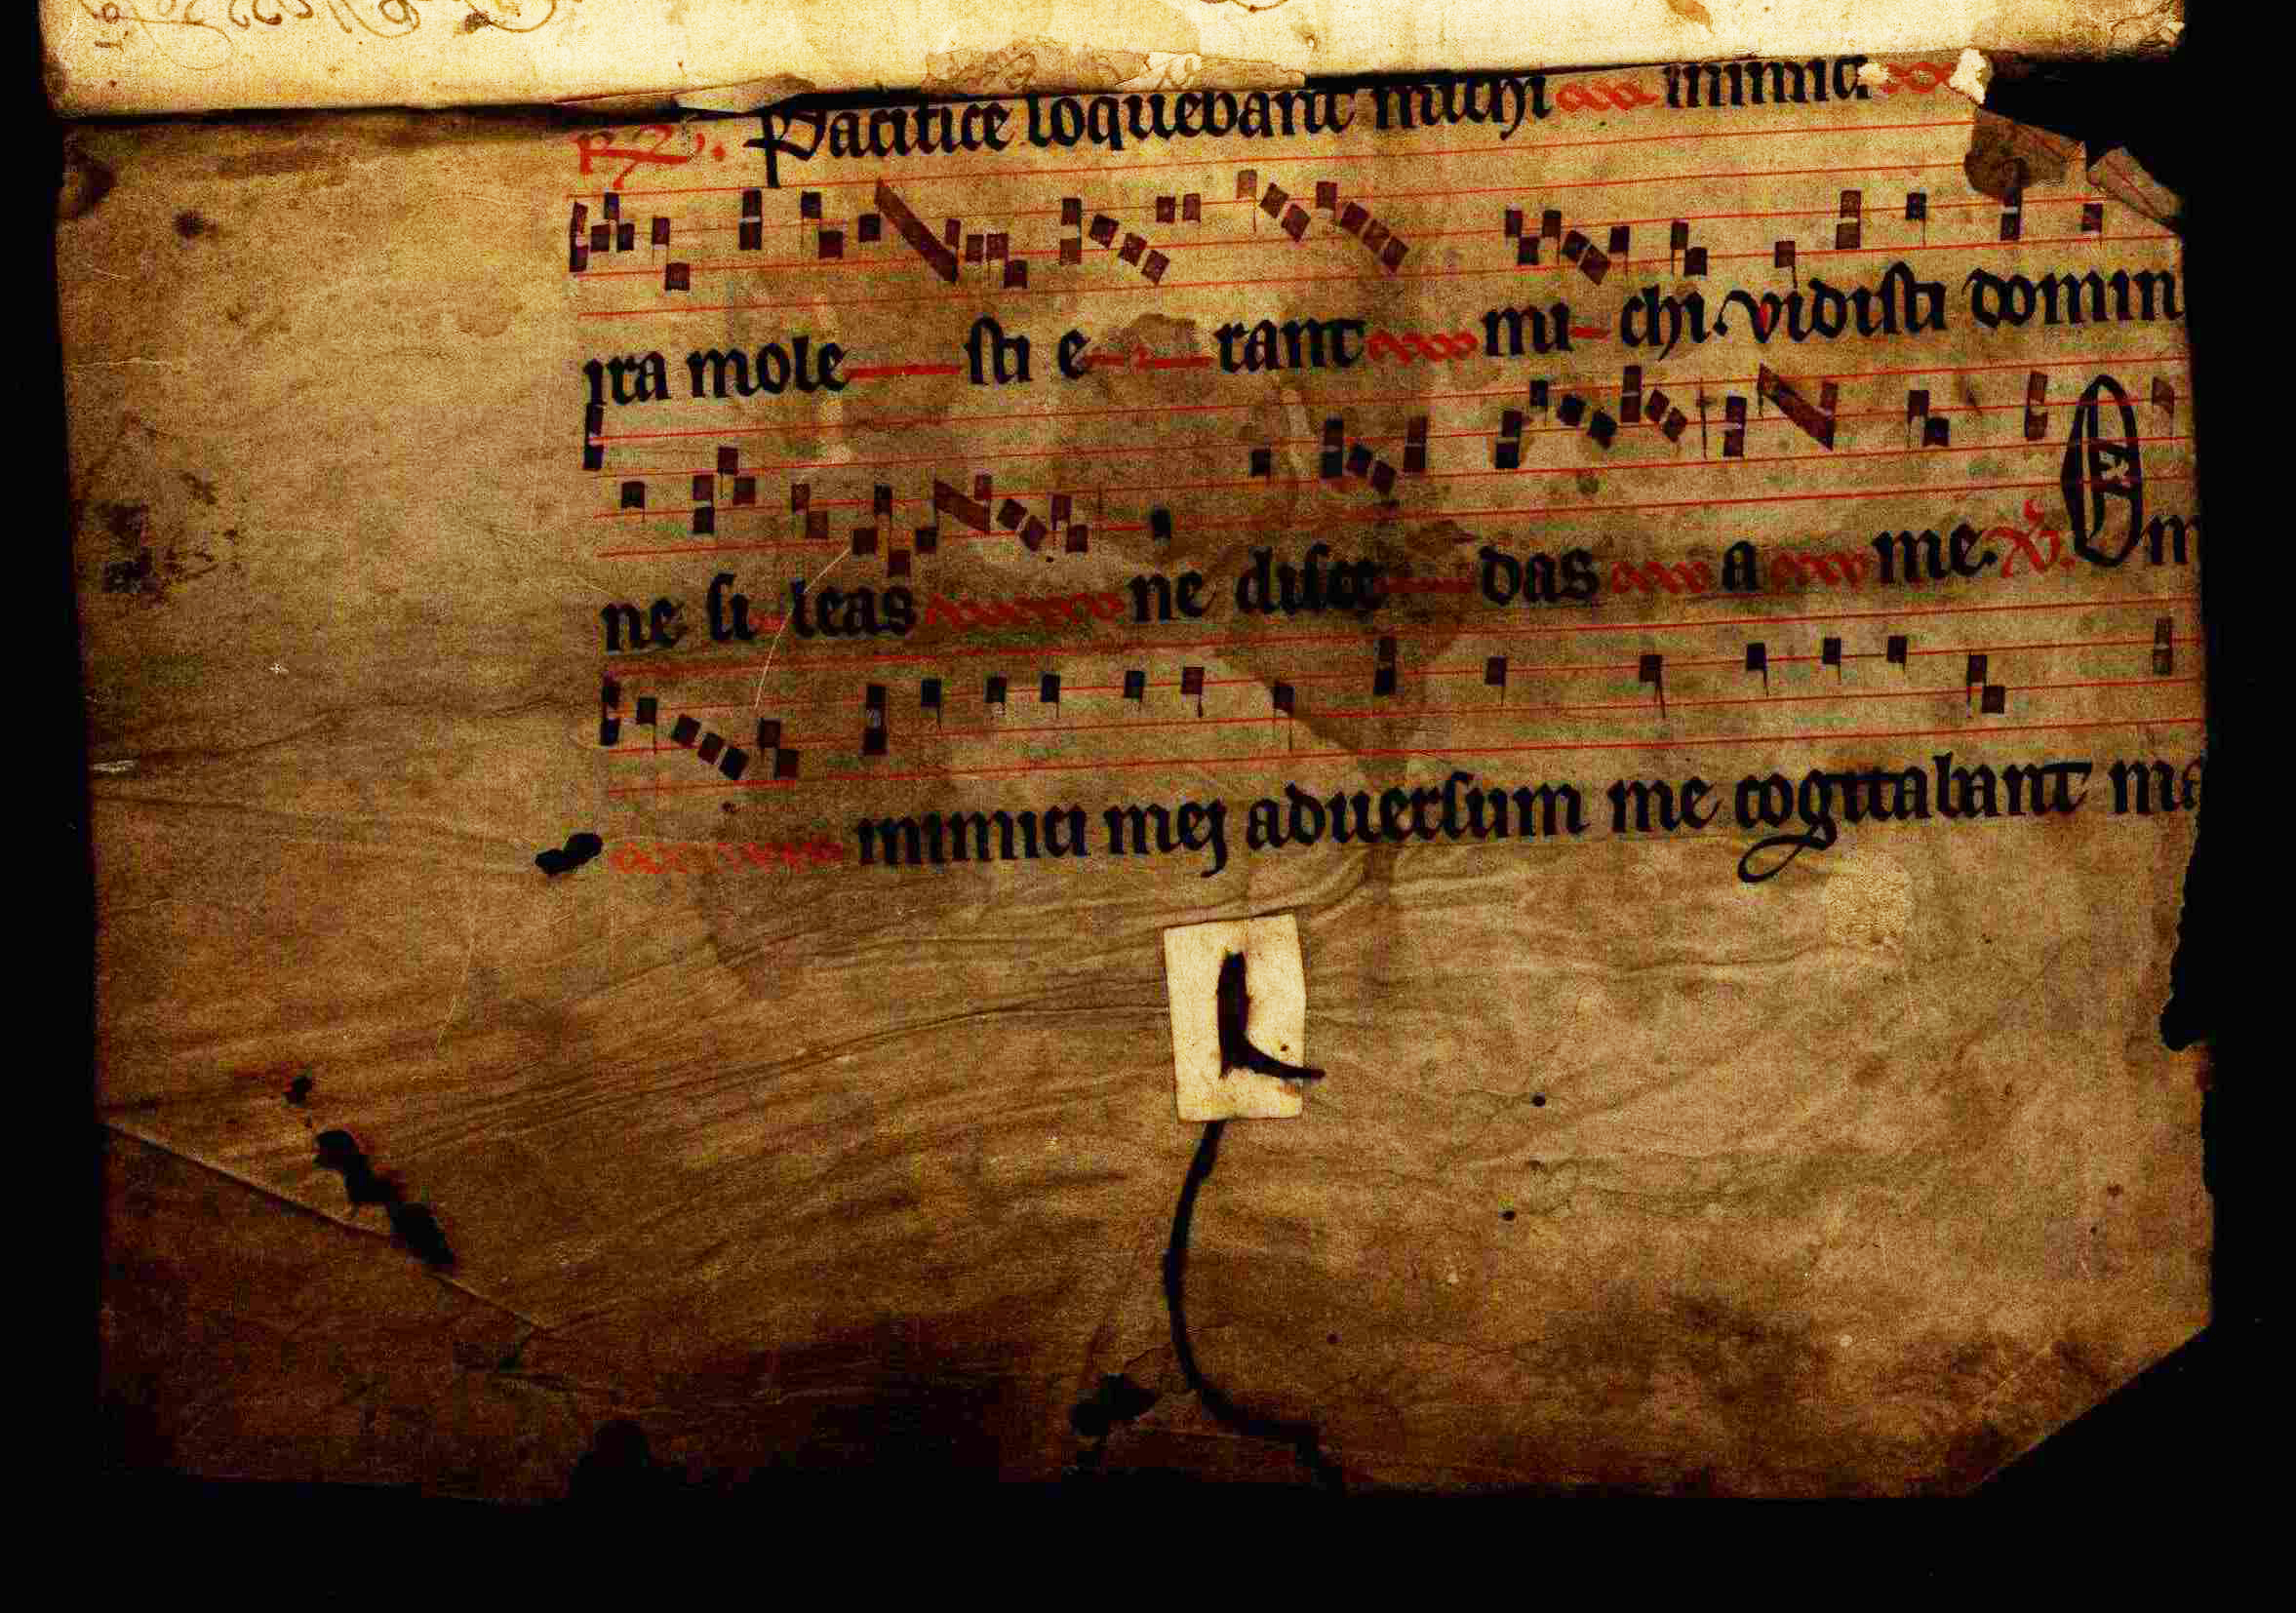 R. Pacifice loquebant michi inimici
ira mole sti e rant mi chi. vidisti domin
ne si leas ne disce das a me. V. Om
inimici mej aduersum me cogitabant ma